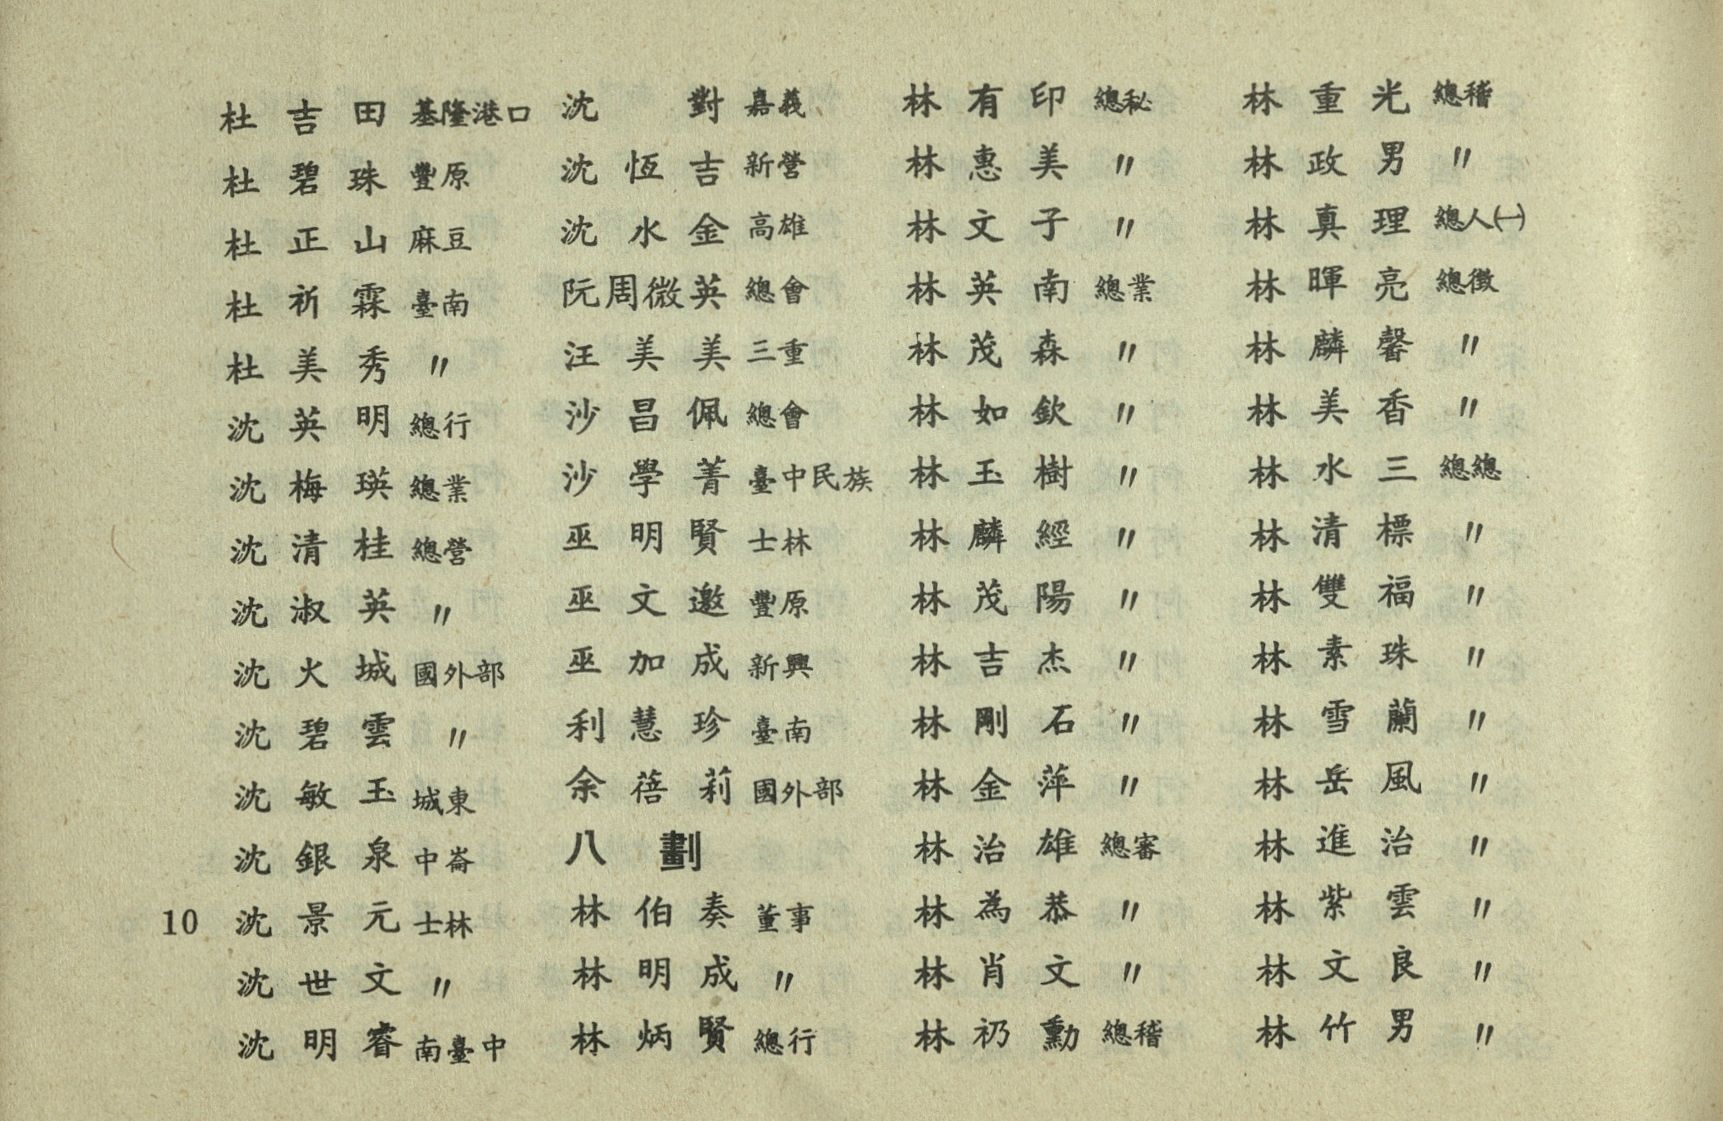 杜吉田 基隆港口
杜碧珠 豐原
杜正山 麻豆
杜祈霖 臺南
杜美秀 〃
沈英明 總行
沈梅瑛 總業
沈清桂 總營
沈淑英 〃
沈火城 國外部
沈碧雲 〃
沈敏玉 城東
沈銀泉 中崙
沈景元 士林
沈世文 〃
沈明睿 南臺中
沈對 嘉義
沈恆吉 新營
沈水金 高雄
阮周微英 總會
汪美美 三重
沙昌佩 總會
沙學菁 臺中民族
巫明賢 士林
巫文邀 豐原
巫加成 新興
利慧珍 臺南
余蓓莉 國外部
八劃
林伯奏 董事
林明成 〃
林炳賢 總行
林有印 總秘
林惠美 〃
林文子 〃
林英南 總業
林茂森 〃
林如欽 〃
林玉樹 〃
林麟經 〃
林茂陽 〃
林吉杰 〃
林剛石 〃
林金萍 〃
林治雄 總審
林為恭 〃
林肖文 〃
林礽勳 總稽
林重光 總稽
林政男 〃
林真理 總人㈠
林暉亮 總徵
林麟馨 〃
林美香 〃
林水三 總總
林清標 〃
林雙福 〃
林素珠 〃
林雪蘭 〃
林岳風 〃
林進治 〃
林紫雲 〃
林文良 〃
林竹男 〃
10